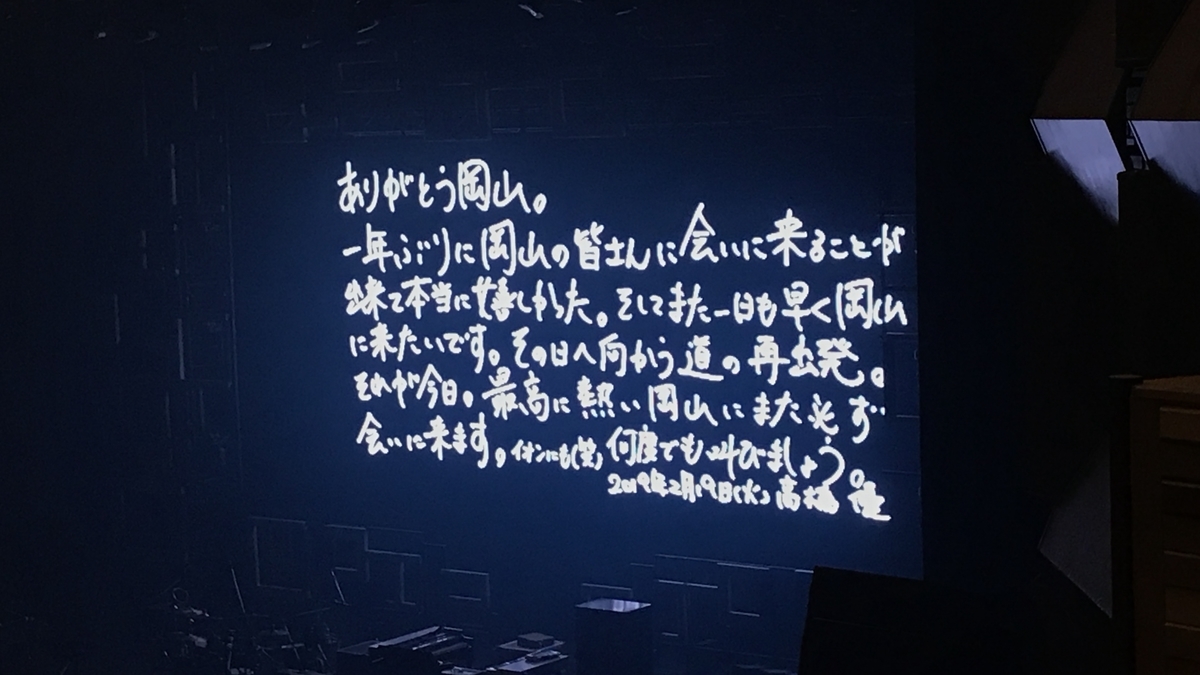 ありがとう岡山。
一年ぶりに岡山の皆さんに会いに来ることが
出来て本当に嬉しかった。そしてまた一日も早く岡山
に来たいです。その日へ向かう道の再出発。
それが今日。最高に熱い岡山にまた必ず
会いに来ます。イオンにも(笑) 何度でも叫びましょう。
2019年2月19日(火) 高橋優